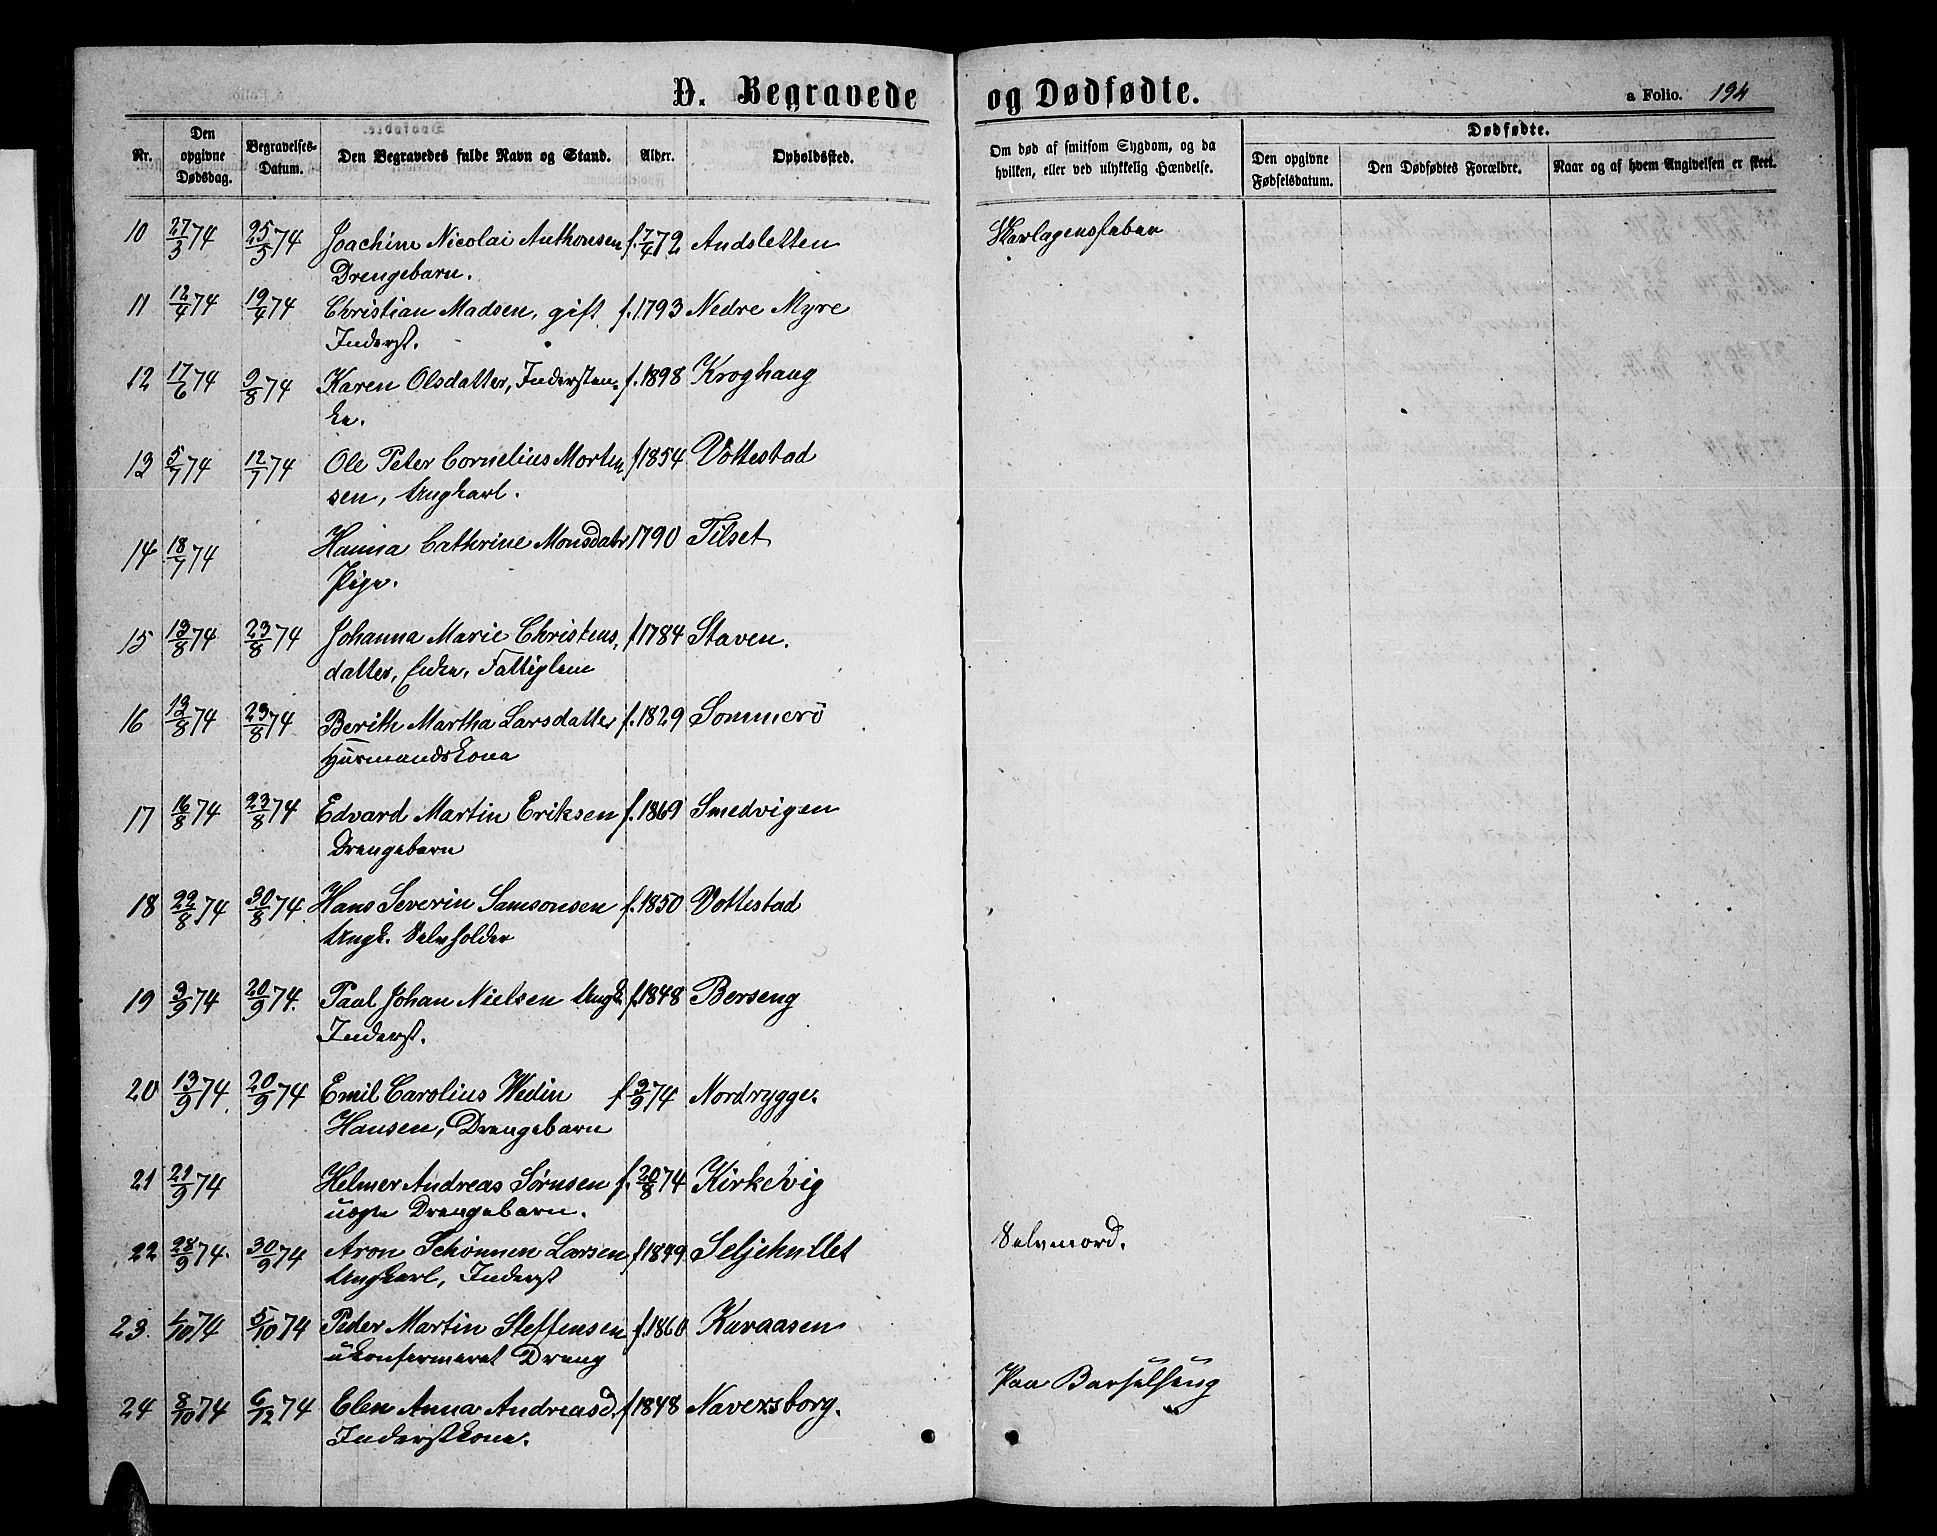 D. Begravede og Dødfødte. a Folio. 194
Nr. Den opgivne Dødsdag. Begravelses-Datum. Den Begravedes fulde Navn og Stand. Alder. Opholdssted. Om død af smitsom Sygdom, og da hvilken, eller ved ulykkelig Hændelse. Dødfødte. Den opgivne Fødselsdatum. Den Dødfødtes Forældre. Naar og af hvem Angivelsen er skeet.
10 27/3 74 25/5 74 Joachim Nicolai Anthonsen f. 7/4 72 Andsletten Skarlagensfeber
Drengebarn.
11 12/4 74 19/4 74 Christian Madsen, gift f. 1793 Nedre Myre
Inderst.
12 17/6 74 9/8 74 Karen Olsdatter, Indersten= f. 1898 Kroghaug
ke.
13 5/7 74 12/7 74 Ole Peter Cornelius Morten f 1854 Vottestad
sen, Ungkarl.
14 18/7 74 Hanna Cathrine Monsdatr 1790 Tilset
Pige.
15 13/8 74 23/8 74 Johanna Marie Christens, f 1784 Staven.
datter, Enke, Fattiglem
16 13/8 74 23/8 74 Berith Martha Larsdatter f. 1829 Sommerö
Husmandskone
17 16/8 74 23/8 74 Edvard Martin Eriksen f. 1869 Smedvigen
Drengebarn
18 22/8 74 30/8 74. Hans Severin Samsonsen f. 1850 Vottestad
Ungk. Selvholder
19 9/9 74 20/9 74. Paul Johan Nielsen Ungk. f. 1848 Berseng
Inderst.
20 13/9 74. 20/9 74 Emil Carolius Wedin f 9/9 74 Nordrygge.
Hansen, Drengebarn
21 21/9 74 Helmer Andreas Sørnsen f. 20/8 74 Kirkevig
uægte Drengebarn.
22 28/9 74. 30/9 74 Aron Schönnen Larsen f 1849 Seljehullet Selvmord.
Ungkarl, Inderst
23. 1/10 74 5/10 74 Peder Martin Steffensen f. 1860 Kuraasen
ukonfermeret Dreng
24 8/10 74 6/12 74 Elen Anna Andreasd. f 1848 Naversborg. Paa Barselseng
Inderstkone.